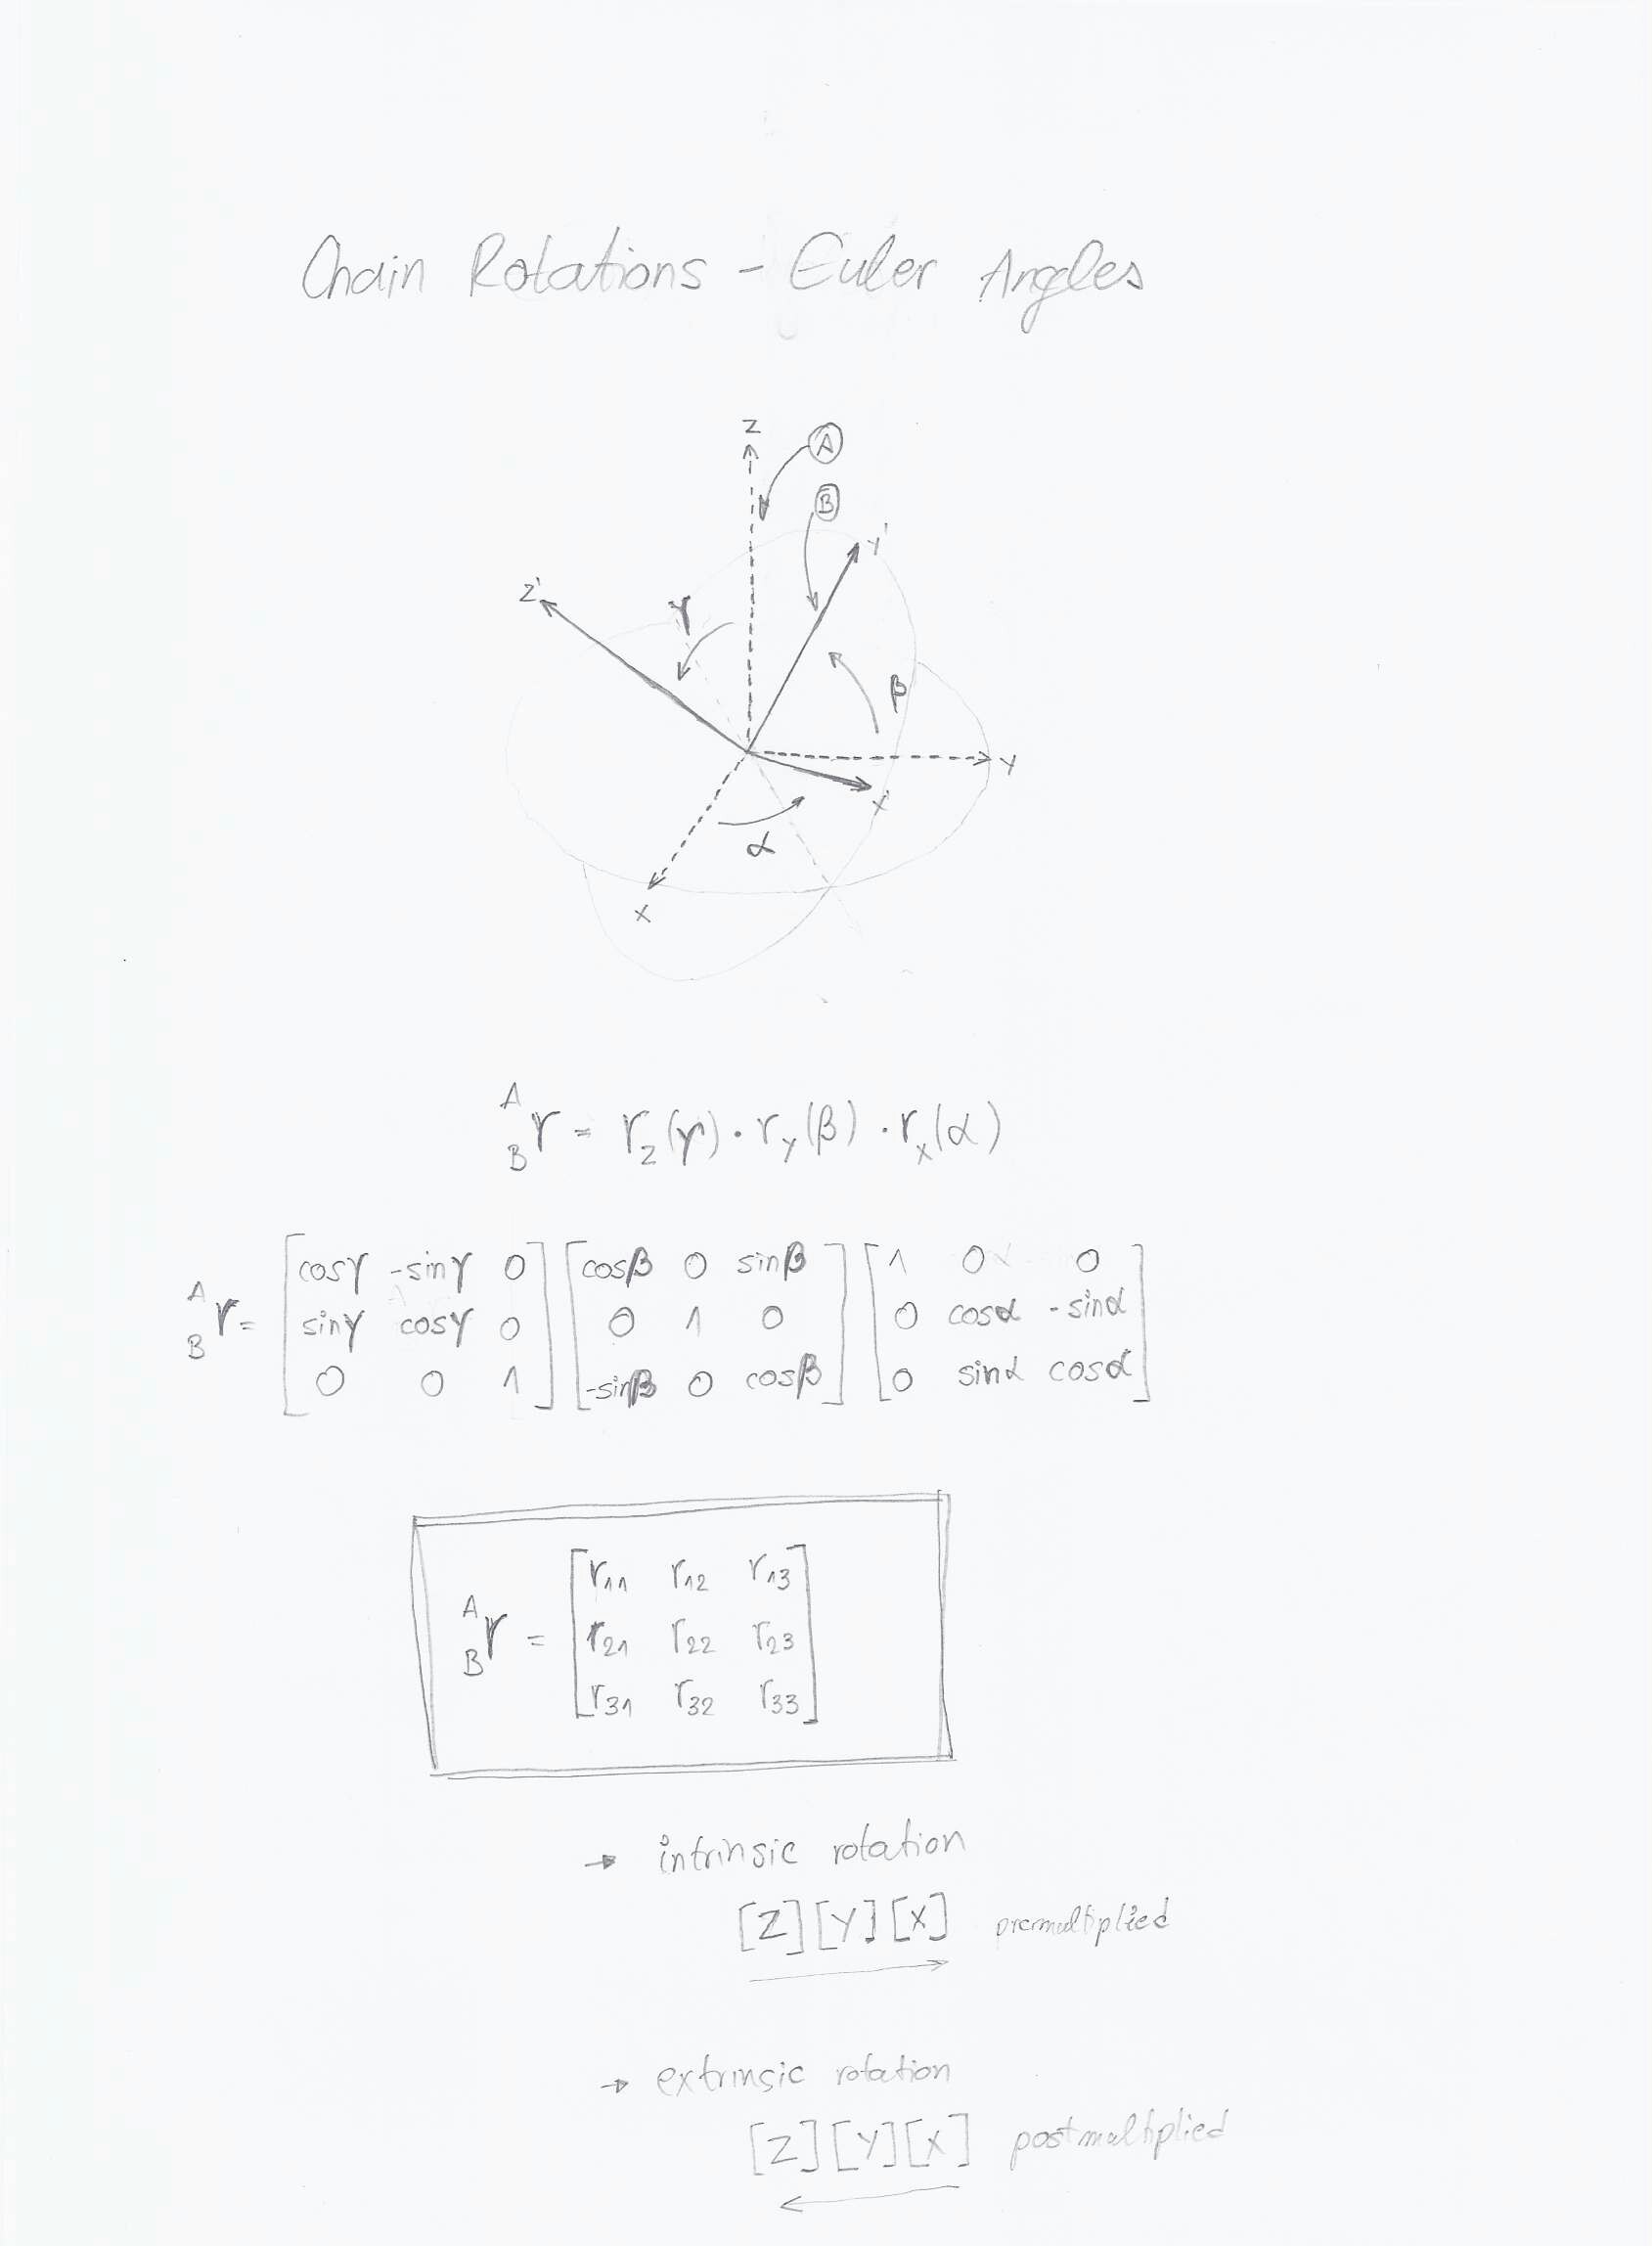 Chain Rotations - Euler Angles
Z
A
B
Y'
Z'
γ
β
Y
X'
α
X
A B r = r_z(γ) · r_y(β) · r_x(α)
A B r = [cosγ -sinγ 0] [cosβ 0 sinβ] [1 0 0]
[sinγ cosγ 0] [0 1 0] [0 cosα -sinα]
[0 0 1] [-sinβ 0 cosβ] [0 sinα cosα]
r11 r12 r13
A B r = r21 r22 r23
r31 r32 r33
→ intrinsic rotation
[Z][Y][X] premultiplied
→ extrinsic rotation
[Z][Y][X] postmultiplied